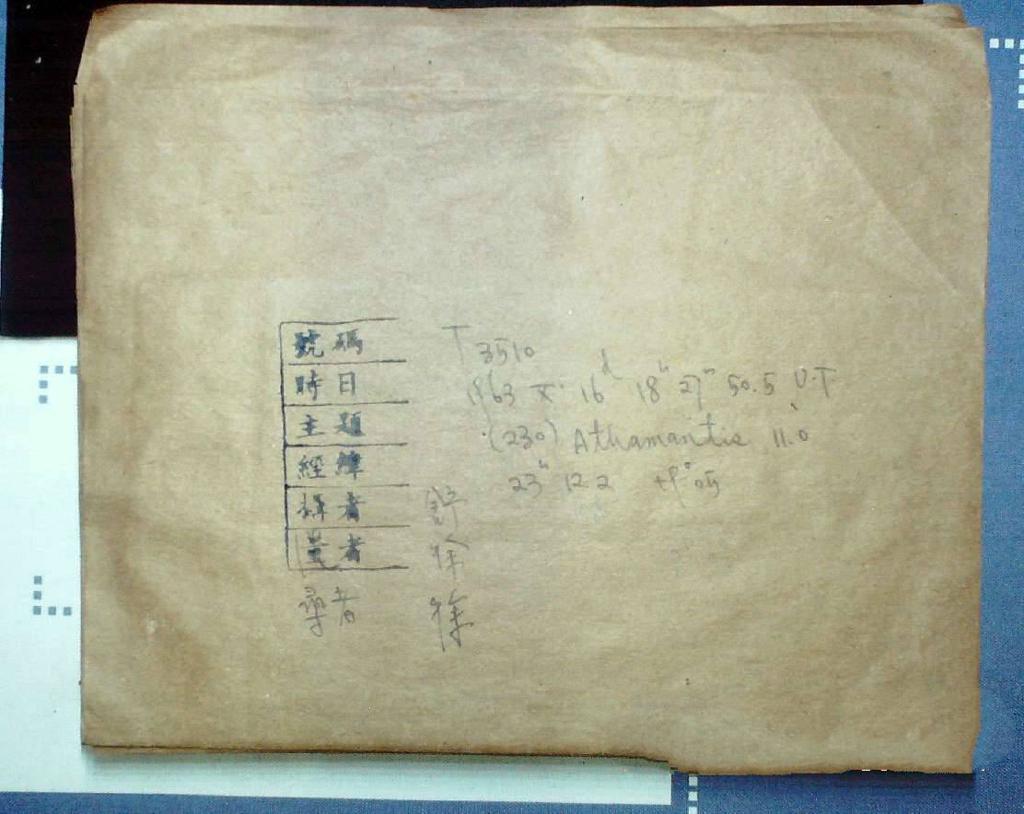 號碼 T 3510
時日 1963 X 16ᵈ 18ʰ 27ᵐ 50.5 U.T
主題 (230) Athamantis 11.0
經緯 23ʰ 12.2 +9°05
攝者 舒
量者 徐
尋者 徐